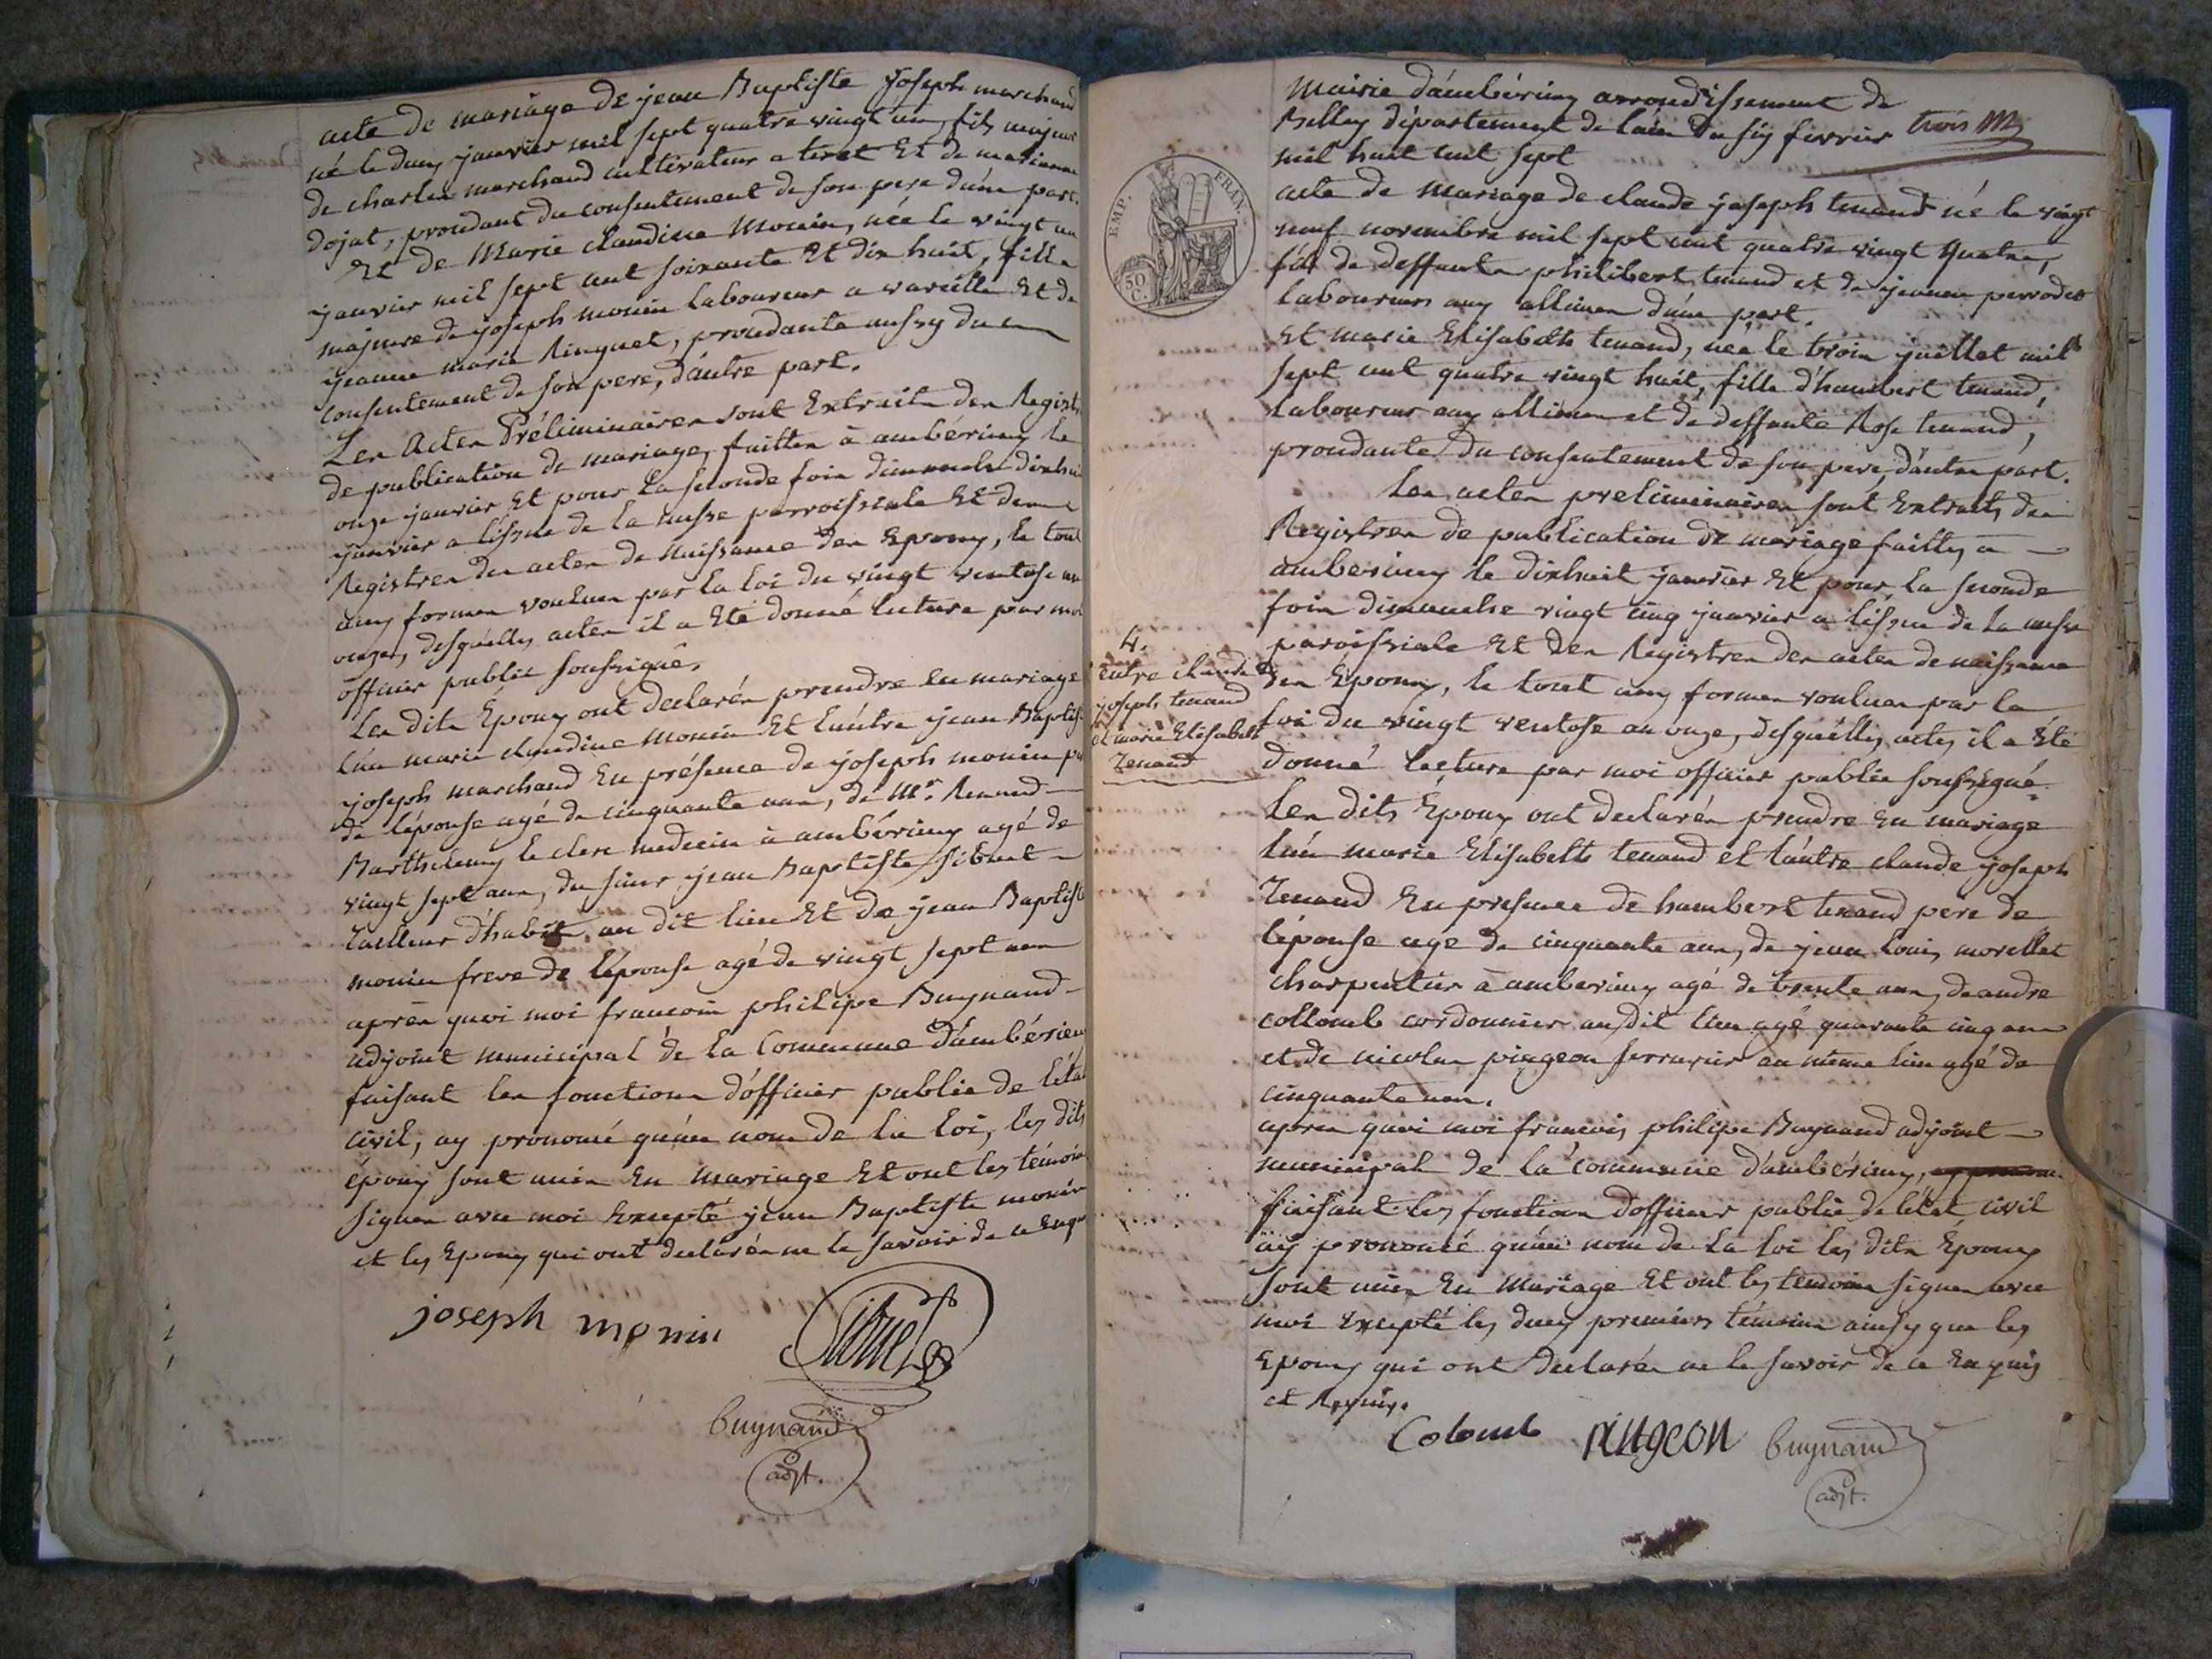 acte de mariage de jean Baptiste joseph marchand
né le duex janvier mil sept quatre vingt un, fils majeur
de charles marchand cultivateur a teret Et de marianne
dojat, procedant du consentement de son pere d'une part.
Et de Marie claudine Monin, née le vingt un
janvier mil sept cent soixante Et dix huit, fille
majeure de joseph monin laboureur a vareille Et de
jeanne marie Ringuet, procedante aussy du
consentement de son pere, d'autre part.
Les Actes Préliminaires sont Extraits des Regist
de publication de mariage, faittes à ambérieux le
onze janvier Et pour la seconde fois dimanche dixhui
janvier a lissue de la messe parroissiale Et des
Registres des actes de naissance des Epoux, le tout
aux formes voulues par la loi du vingt ventose an
onze, desquelles actes il a Eté donné lecture par moi
officier public soussigné.
Les dits Epoux ont declarés prendre en mariage
l'un marie claudine Monin Et l'autre jean Baptis
joseph marchand En présence de joseph monin pe
de l'épouse agé de cinquante ans, de Mr. Renaud
Barthelemy le clerc medecin à ambérieux agé de
vingt sept ans, du sieur jean Baptiste sibuet
tailleur d'habit au dit lieu Et de jean Baptiste
monin frere de l'épouse agé de vingt sept ans
après quoi moi francois philipe Buynand
adjoint municipal de la Commune d'ambérieu
faisant les fonctions d'officier public de l'éta
civil, ay pronomcé qu'au nom de la loi, les dits
époux sont unis En mariage Et ont les témoins
signes avec moi Excepté jean Baptiste monin
et les Epoux qui ont declarés ne le savoir de ce Enqui
joseph monin
Sibuet
buynand
adjt.
Mairie d'ambérieux arrondissement de
Belley département de lain du six fevrier
mil huit cent sept
trois
EMP. FRAN.
50 C.
acte de mariage de claude joseph tenand né le vingt
neuf novembre mil sept cent quatre vingt quatre,
fils de deffunte philibert tenand et de jeanne perrodet
laboureurs aux allimes d'une part.
Et marie Elisabeth tenand, née le trois juillet mil
sept cent quatre vingt huit, fille d'humbert tenand,
laboureur aux allimes et de deffunte Rose tenand,
procedante du consentement de son pere, d'autre part.
Les actes preliminaires sont Extraits des
Registres de publication de mariage faittes a
amberieux le dixhuit janvier Et pour la seconde
fois dimanche vingt cinq janvier a lissue de la messe
paroissiale Et des Registres des actes de naissance
des Epoux, le tout aux formes voulues par la
loi du vingt ventose an onze, desquelles actes il a Eté
donné lecture par moi officier public soussigné.
4.
entre claude
joseph tenand
et marie Elisabeth
Tenand
Les dits Epoux ont declarés prendre en mariage
l'un marie Elisabeth tenand et l'autre claude joseph
Tenand En presence de humbert tenand pere de
l'épouse age de cinquante ans, de jean louis morellet
charpentier à amberieux agé de trente ans, de andre
collomb cordonnier audit lieu agé quarante cinq ans
et de nicolas pingeon serrurier au même lieu agé de
cinquante ans.
apres quoi moi francois philipe Buynand adjoint
municipal de la commune d'ambérieux,
faisant les fonctions d'officier public de l'état civil
ay prononcé qu'au nom de la loi les dits Epoux
sont unis En Mariage Et ont les temoins signes avec
moi Excepté les deux premiers témoins ainsy que les
Epoux qui ont declarés ne le savoir de ce Enquis
et Requis.
Colomb pingeon buynand
adjt.